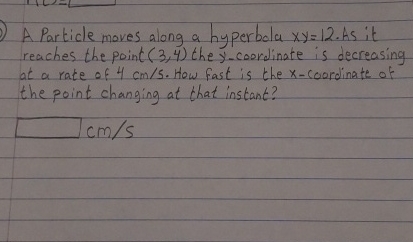 A Particle moves along a hyperbola xy=12. As it
reaches the point (3,4) the y-coordinate is decreasing
at a rate of 4 cm/s. How fast is the x-coordinate of
the point changing at that instant?
cm/s